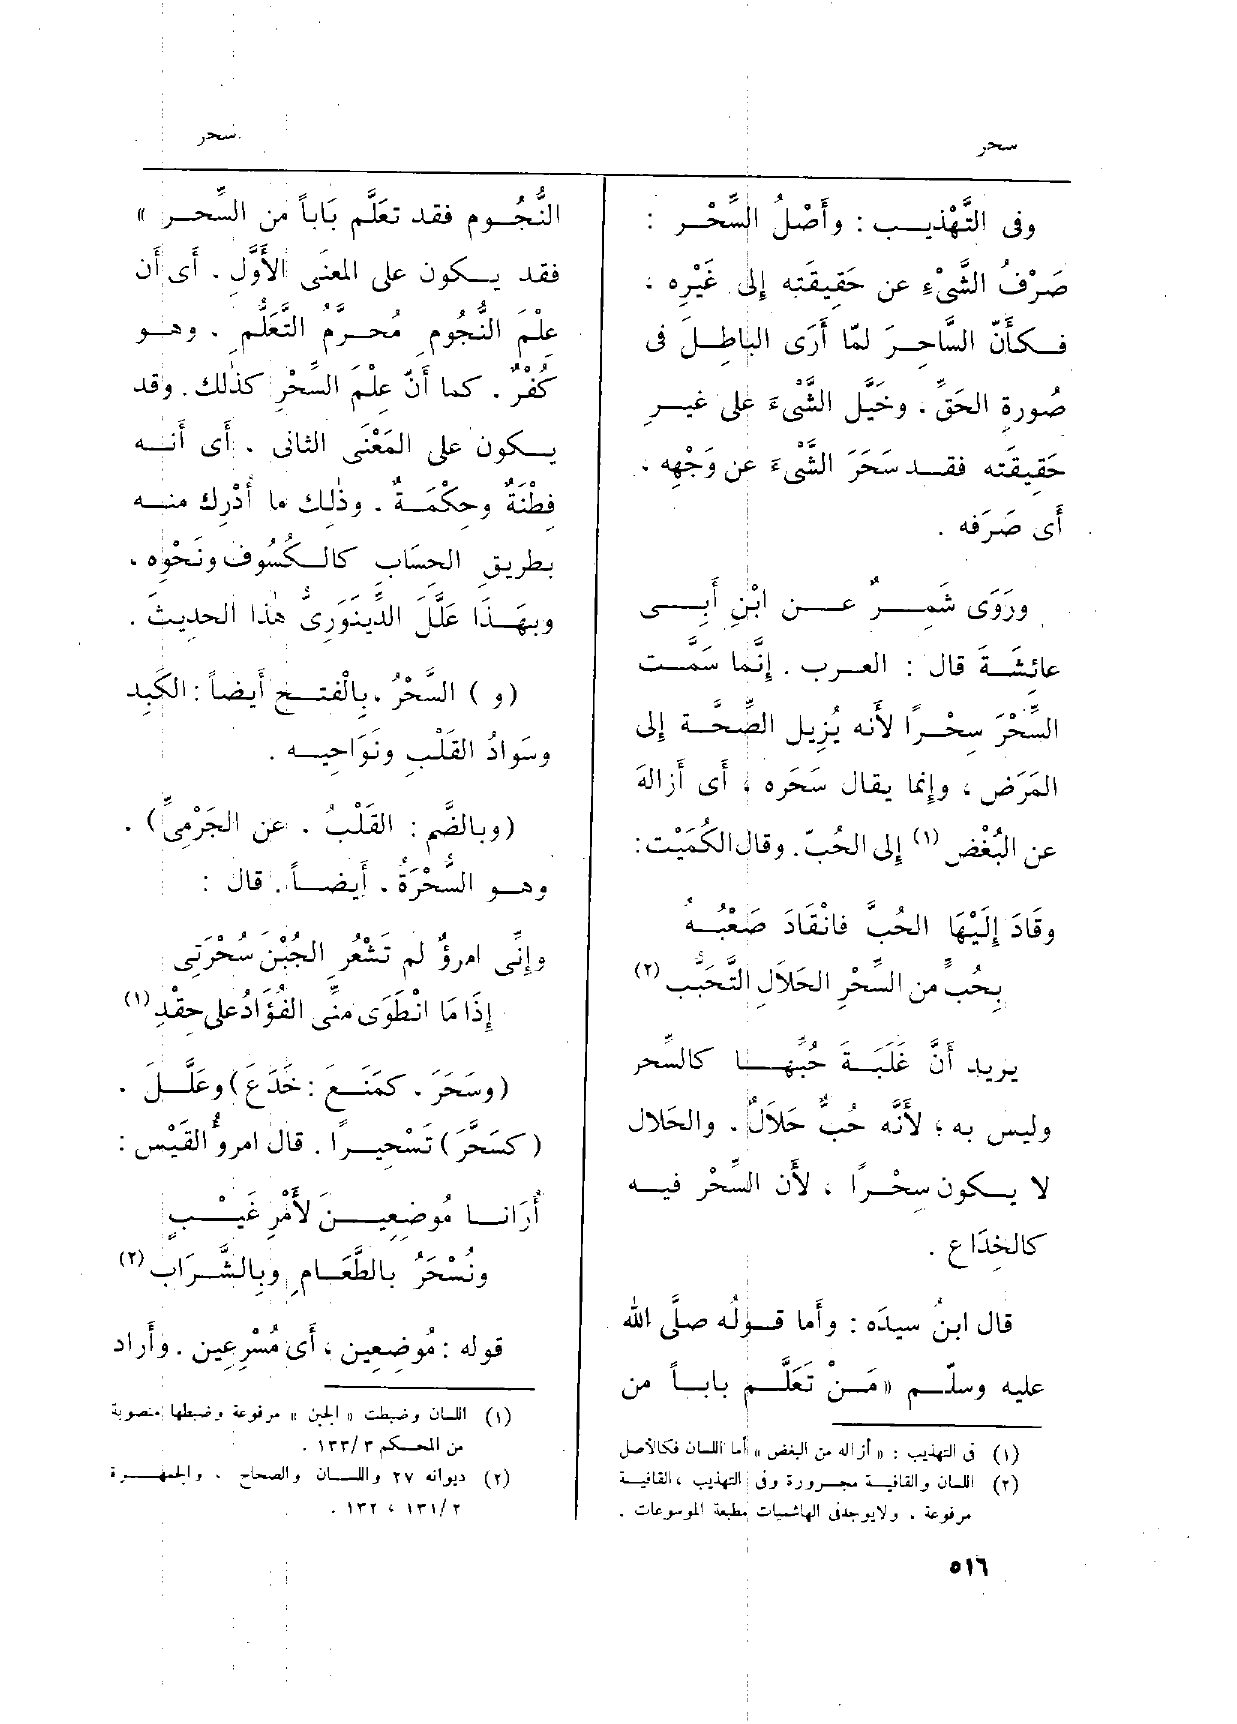 سحر
وفى التَّهْذِيب : وأَصْلُ السِّحْر :
صَرْفُ الشَّىْءِ عن حَقِيقَتِه إِلى غَيْرِه ،
فكأَنّ السَّاحِرَ لمّا أَرَى الباطِلَ فى
صُورةِ الحَقِّ ، وخَيَّل الشَّىْءَ على غيرِ
حَقِيقَتِه فقد سَحَرَ الشَّىْءَ عن وَجْهِه ،
أَى صَرَفه .
ورَوَى شَمِرٌ عن ابْنِ أَبِى
عائِشَةَ قال : العرب . إِنَّما سَمَّت
السِّحْرَ سِحْرًا لأَنه يُزِيل الصِّحَّة إِلى
المَرَض ، وإِنما يقال سَحَره ، أَى أَزالهَ
عن البُغْض (١) إِلى الحُبّ . وقال الكُمَيْت :
وقَادَ إِلَيْهَا الحُبَّ فانْقَادَ صَعْبُهُ
بِحُبٍّ من السِّحْرِ الحَلاَلِ التَّحَبُّبِ (٢)
يريد أَنَّ غَلَبَةَ حُبِّها كالسِّحر
وليس به ، لأَنَّه حُبٌّ حَلالٌ ، والحَلال
لا يكون سِحْرًا ، لأَن السِّحْر فيه
كالخِدَاع .
قال ابنُ سيدَه : وأَما قولُه صلَّى الله
عليه وسلّم « مَنْ تَعَلَّم باباً من
(١) فى التهذيب : « أزاله من البغض » أما اللسان فكالأصل
(٢) اللسان والقافية مجرورة وفى التهذيب ، القافية
مرفوعة . ولايوجد فى الهاشميات مطبعة الموسوعات .
سحر
النُّجُومِ فقد تعَلَّم بَاباً من السِّحر »
فقد يكون على المعنَى الأَوَّل . أَى أَن
عِلْمَ النُّجُومِ مُحرَّم التَّعَلُّمِ . وهو
كُفْرٌ . كما أَنّ عِلْمَ السِّحْرِ كذٰلك . وقد
يكون على المَعْنَى الثانى . أَى أَنه
فِطْنَةٌ وحِكْمَةٌ . وذٰلك ما أُدْرِك منه
بطريقِ الحِسَاب كالكُسُوف ونَحْوِه .
وبِهَذَا عَلَّلَ الدِّينَوَرِىُّ هٰذا الحديثَ .
( و ) السَّحْرُ ، بِالْفتح أَيضاً : الكَبِد
وسَوادُ القَلْبِ ونَوَاحِيه .
(وبالضَّم : القَلْبُ . عن الجَرْمِىِّ) .
وهو السُّحْرَةُ . أَيضاً . قال :
وإِنِّى امرؤٌ لم تَشْعُرِ الجُبْنَ سُحْرَتِى
إِذَا مَا انْطَوَى مِنِّى الفُؤَادُ على حِقْدِ (١)
(وسَحَرَ ، كمَنَعَ : خَدَعَ) وعَلَّلَ ،
(كسَحَّرَ) تَسْحِيرًا . قال امرؤُ القَيْس :
أُرَانا مُوضِعِينَ لأَمْرِ غَيْبٍ
ونُسْحَرُ بالطَّعَامِ وبِالشَّرَابِ (٢)
قوله : مُوضِعِين ، أَى مُسْرِعِين . وأَراد
(١) اللسان وضبطت « الجبن » مرفوعة وضبطها منصوبة
من المحكم ١٣٣/٣ .
(٢) ديوانه ٢٧ واللسان والصحاح ، والجمهرة
١٣١/٢ ، ١٣٢ .
٥١٦